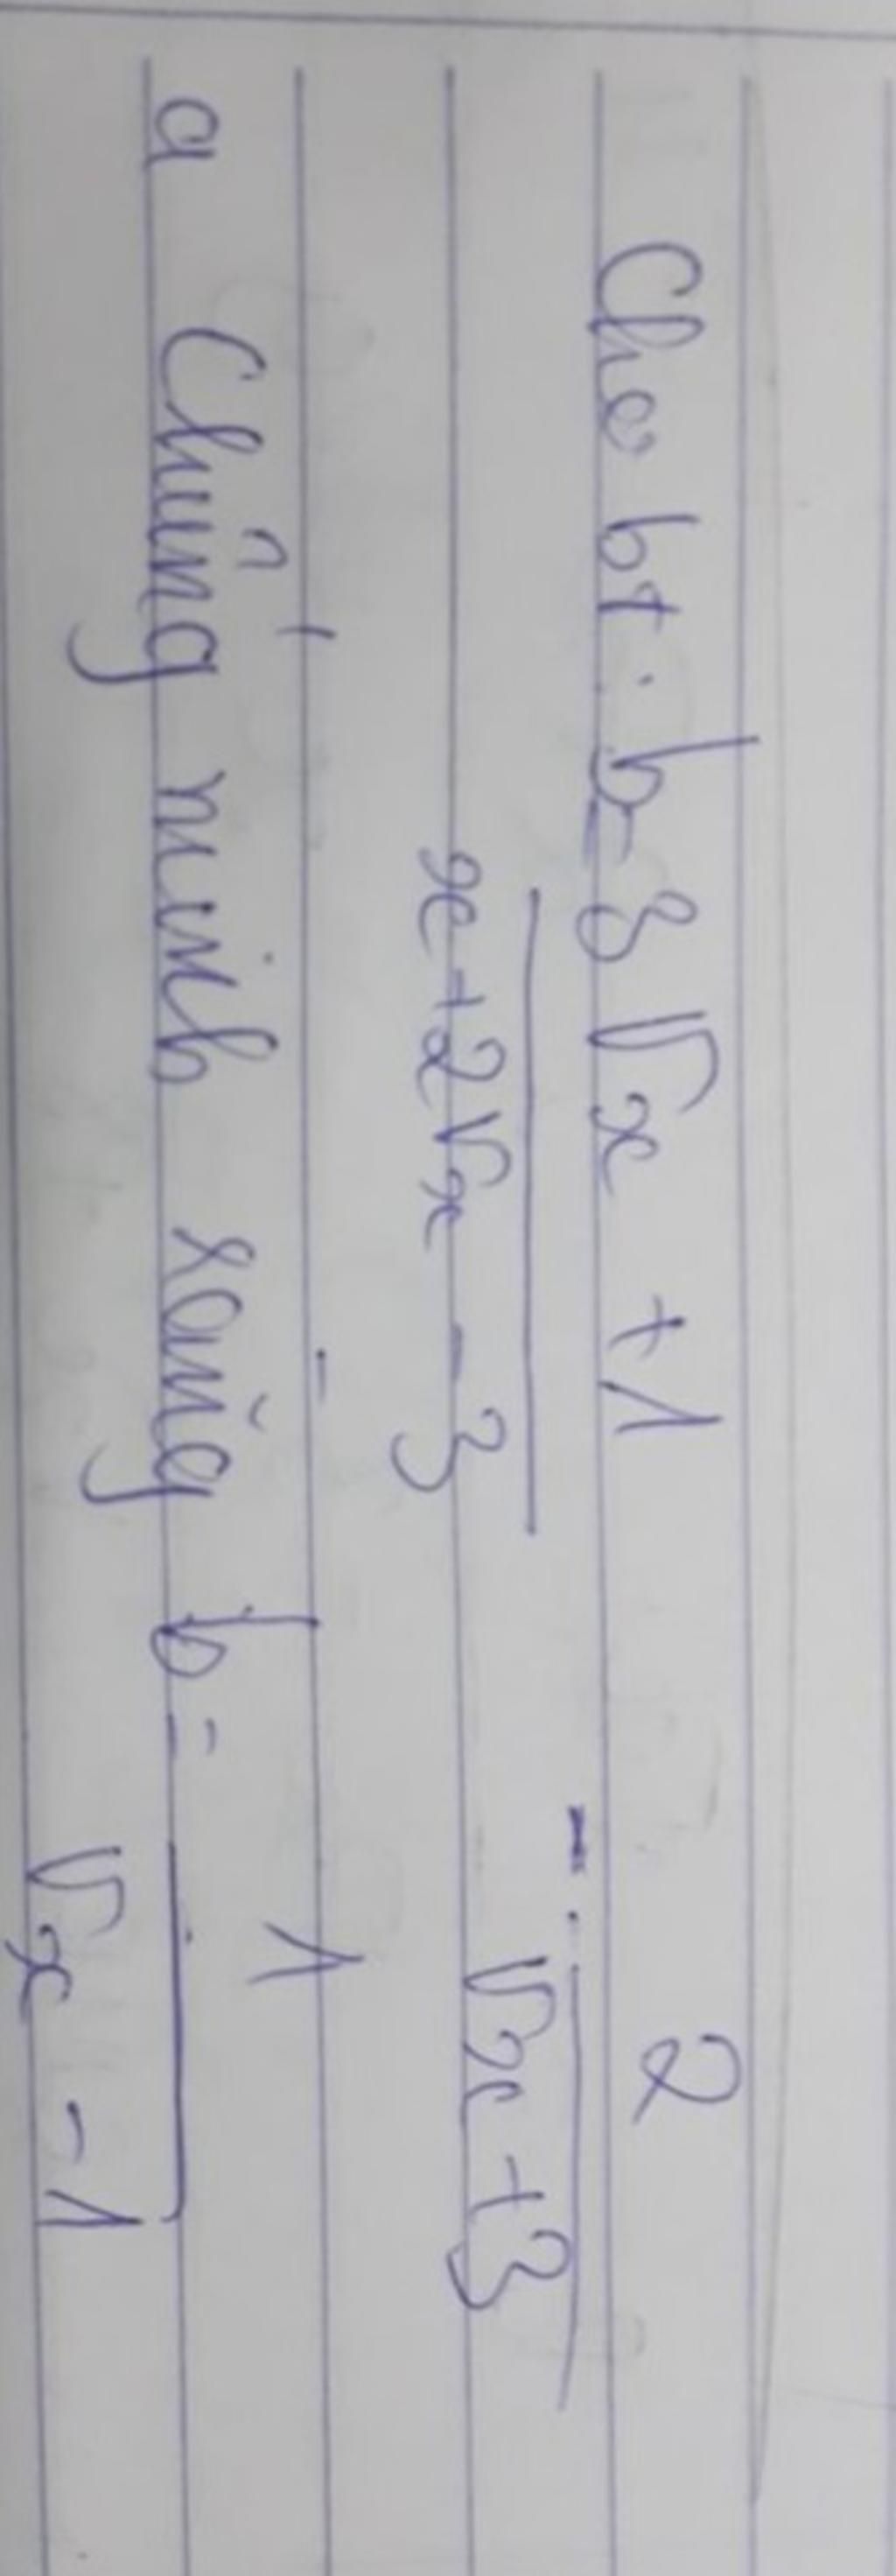 Cho bt: b = 3√x + 1 / x + 2√x - 3 - 2 / √x + 3
a Chứng minh rằng b = 1 / √x - 1